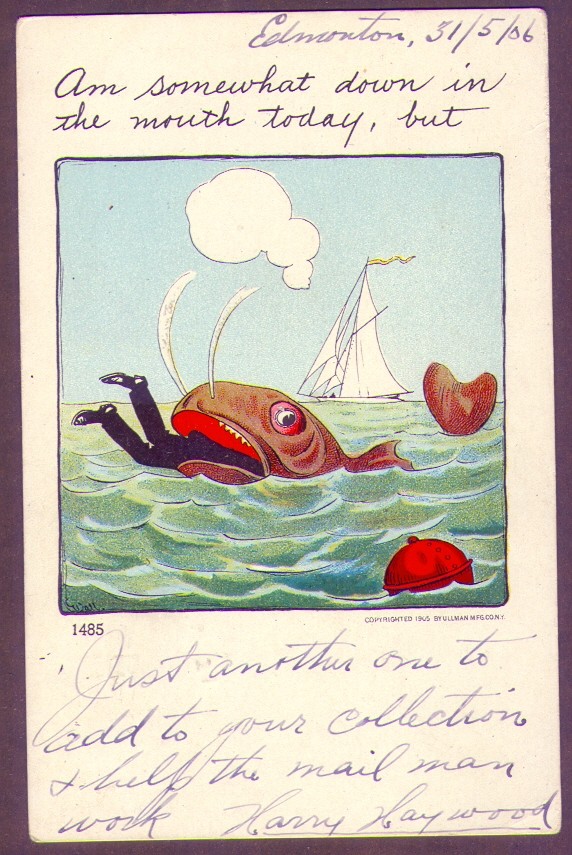 Edmonton, 31/5/06
Am somewhat down in
the mouth today, but
COPYRIGHTED 1905 BY ULLMAN MFG.CO.N.Y.
1485
Just another one to
add to your collection
& help the mail man
work Harry Haywood